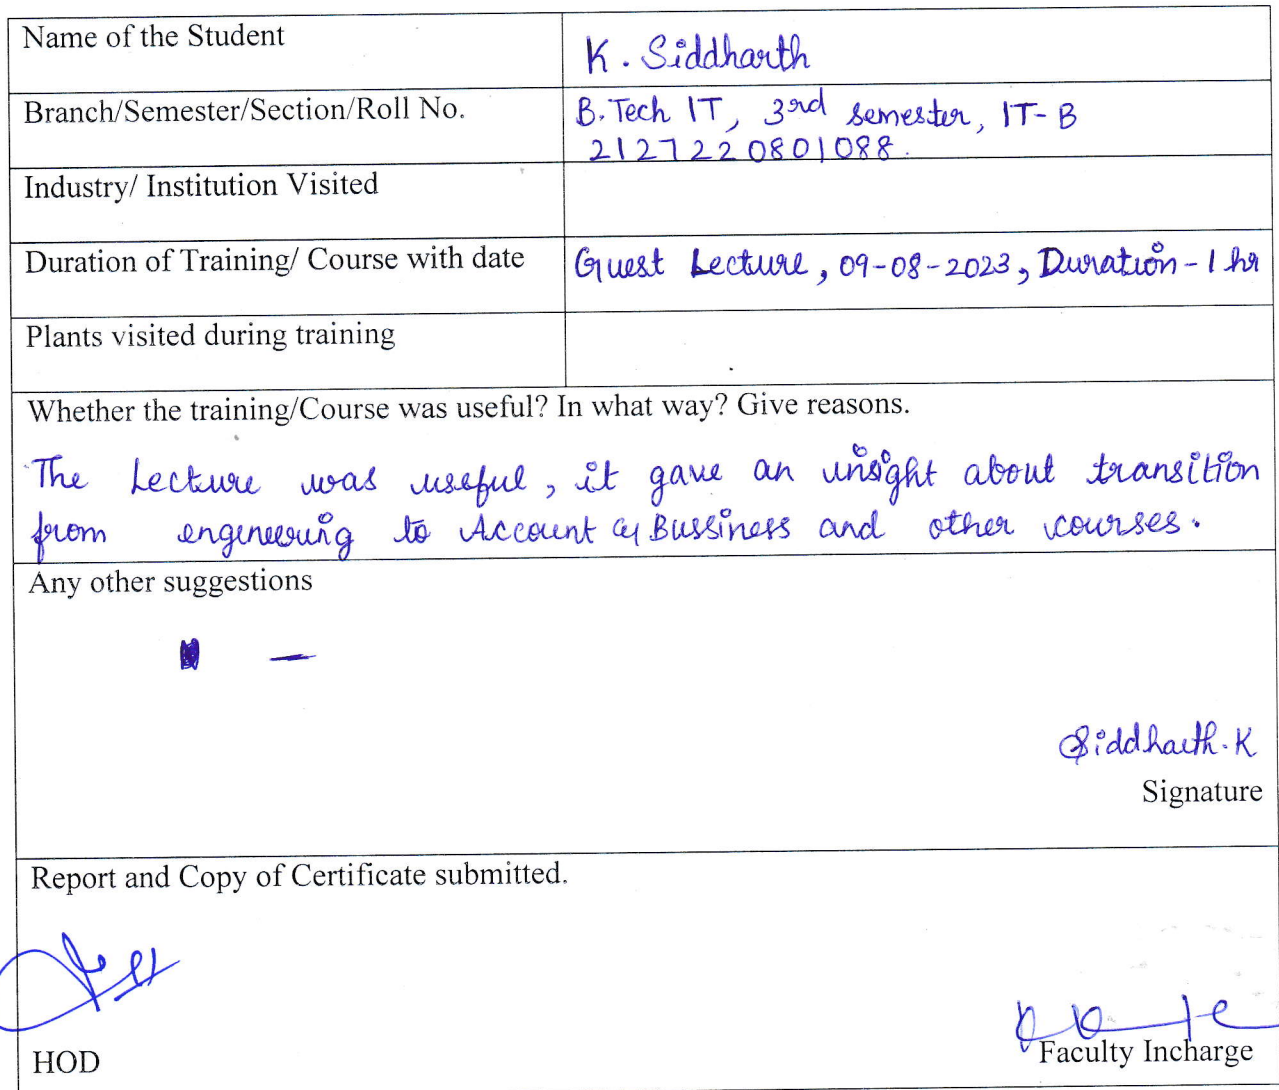 Name of the Student
K. Siddharth
Branch/Semester/Section/Roll No.
B.Tech IT, 3rd semester, IT-B
2127220801088.
Industry/ Institution Visited
Duration of Training/ Course with date
Guest Lecture, 09-08-2023, Duration - 1 hr
Plants visited during training
Whether the training/Course was useful? In what way? Give reasons.
The Lecture was useful, it gave an insight about transition
from engineering to Account & Bussiness and other courses.
Any other suggestions
—
Siddharth.K
Signature
Report and Copy of Certificate submitted.
HOD
Faculty Incharge